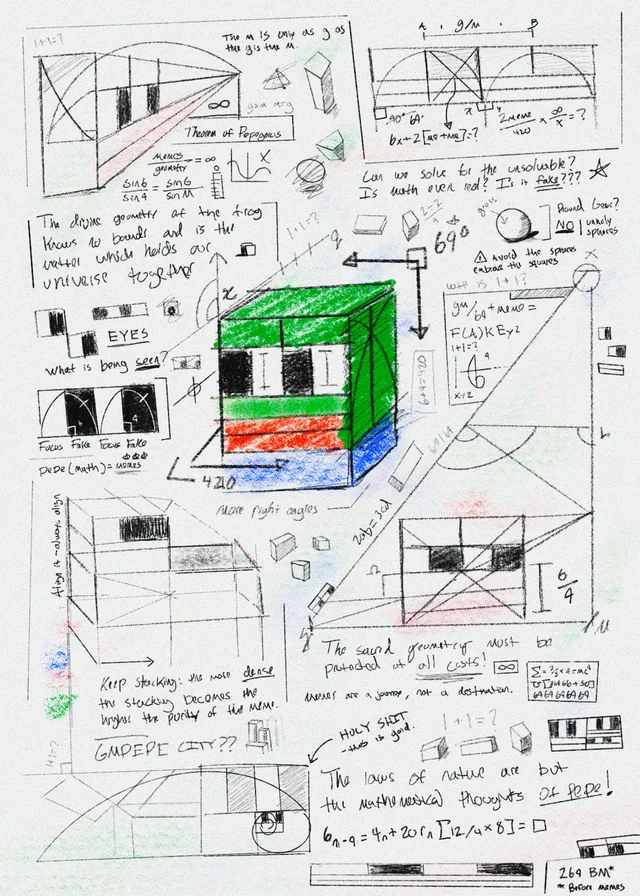 1+1=?
The M is only as g as
the g is the M.
∞
Theorem of Pepegoras
memes
geometry
= ∞
sin 6 = sin 6
sin 4 sin M
X
A g/M B
90° 69.
X
6x+2[me+me]=?
2meme × ∞ = ?
420 x
Can we solve for the unsolvable?
Is math even real? Is it fake???
The divine geometry of the frog
knows no bounds and is the
matter which holds our
universe together
1+1=?
2=2
69°
gross
Round Gear?
NO
unholy
spheres
⚠ Avoid the spheres
embrace the squares
what is 1+1?
gM/69 + meme =
F(A)KEy2
1+1=?
x=2
x
EYES
What is being seen?
6+4=420
Focus Fake Focus Fake
pepe(math)=memes
4210
69/69
more right angles
Align it - always align
2ab=3cd
6
4
M
The sacred geometry must be
protected at all costs!
∞
memes are a journey, not a destination.
69 69 69 69 69
Keep stacking: the more dense
the stacking becomes the
higher the purity of the meme.
GMPEPE CITY??
HOLY SHIT
- this is gold.
1+1=?
The laws of nature are but
the mathematical thoughts of Pepe!
6n-9 = 4n+20rn [12/4×8] = □
269 BM*
* Before memes